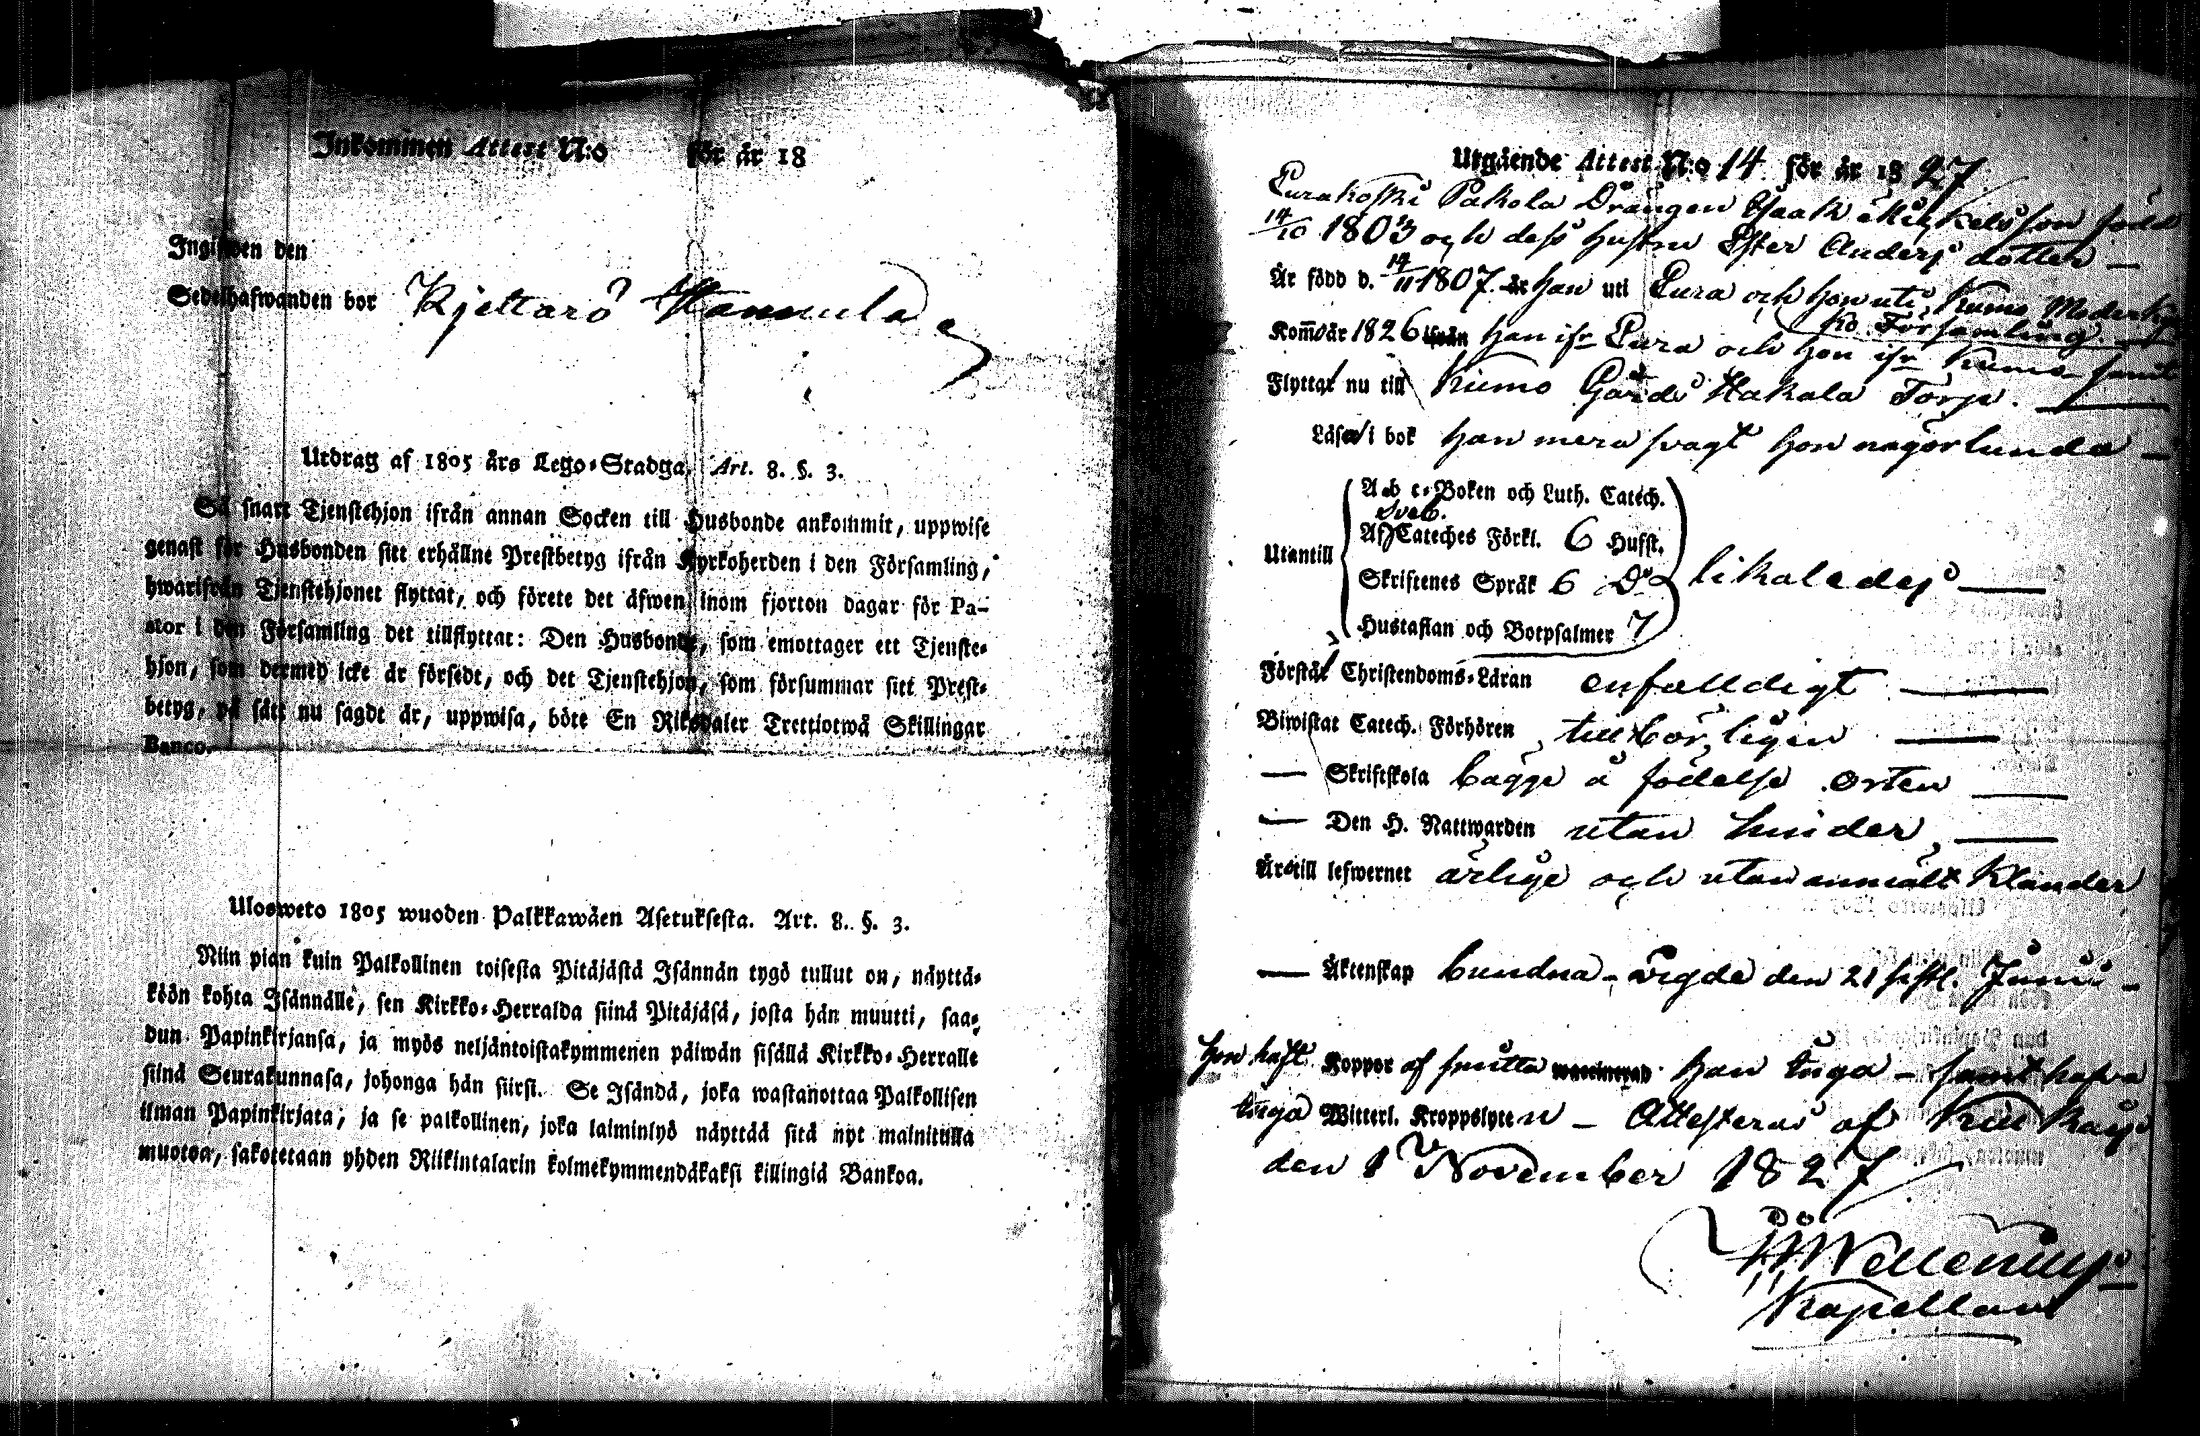 Inkommen Attest N:o för år 18
Ingifwen den
Sedelhafwanden bor Kjettarö Hannula
Utdrag af 1805 års Lego-Stadga, Art. 8. §. 3.
Så snart Tjenstehjon ifrån annan Socken till Husbonde ankommit, uppwise
genast för Husbonden sitt erhållne Prestbetyg ifrån Kyrkoherden i den Församling,
hwarifrån Tjenstehjonet flyttat, och förete det äfwen inom fjorton dagar för Pa-
stor i den Församling det tillflyttat: Den Husbonde, som emottager ett Tjenste-
hjon, som dermed icke är försedt, och det Tjenstehjon, som försummar sitt Prest-
betyg, på sätt nu sagdt är, uppwisa, böte En Riksdaler Trettiotwå Skillingar
Banco.
Ulosweto 1805 wuoden Palkkawäen Asetuksesta. Art. 8. §. 3.
Niin pian kuin Palkollinen toisesta Pitäjästä Isännän tygö tullut on, näyttä-
köön kohta Isännälle, sen Kirkko-Herralda siinä Pitäjäsä, josta hän muutti, saa-
dun Papinkirjansa, ja myös neljäntoistakymmenen päiwän sisällä Kirkko-Herralle
siinä Seurakunnasa, johonga hän siirsi. Se Isändä, joka wastanottaa Palkollisen
ilman Papinkirjata, ja se palkollinen, joka laiminlyö näyttää sitä nyt mainitulla
muotoa, sakotetaan yhden Riikintalarin kolmekymmendäkaksi killingiä Bankoa.
Utgående Attest N:o 14 för år 1827
Eurakoski Pakola Drängen Isaak Michelsson född
14/10 1803 och dess hustru Ester Anders dotter —
Är född d. 14/11 1807. är han uti Eura och hon uti Kumo Moderky
ko Församling.
Kom̄o år 1826 ifrån han ifr Eura och hon ifr Kumo samt
Flytta nu till Kumo Gårds Hakala Torp.
Läsa i bok han mera svagt hon någorlunda —
Utantill
A b c-Boken och Luth. Catech.
Sveb.
Af Cateches Förkl. 6 Hufst.
Skriftenes Språk 6 Do
Hustaflan och Botpsalmer 7
likaledes —
Förstå Christendoms-Läran enfaldigt —
Biwistat Catech. Förhören tillbörligen —
— Skriftskola bägge å födelse orten —
— Den H. Nattwarden utan hinder —
Äro till lefwernet ärlige och utan anmält klander
— Äktenskap bundna - Vigde den 21 sistl. Junii -
hon haft Koppor af smitta waccinerad han inga - samt hafva
inga Witterl. Kroppslyten - Attesteras af Kiukais
den 1 November 1827
Kapellan